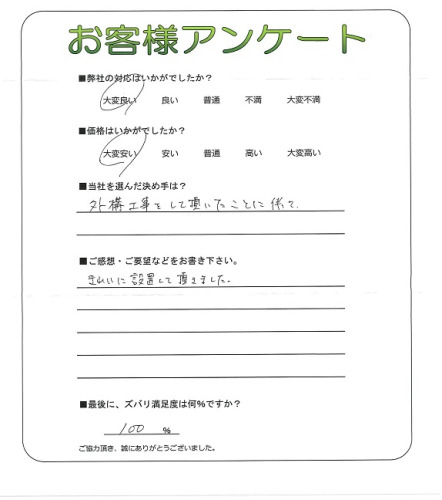 お客様アンケート
■弊社の対応はいかがでしたか？
大変良い 良い 普通 不満 大変不満
■価格はいかがでしたか？
大変安い 安い 普通 高い 大変高い
■当社を選んだ決め手は？
外構工事をして頂いたことに依って.
■ご感想・ご要望などをお書き下さい。
きれいに設置して頂きました.
■最後に、ズバリ満足度は何%ですか？
100 %
ご協力頂き、誠にありがとうございました。